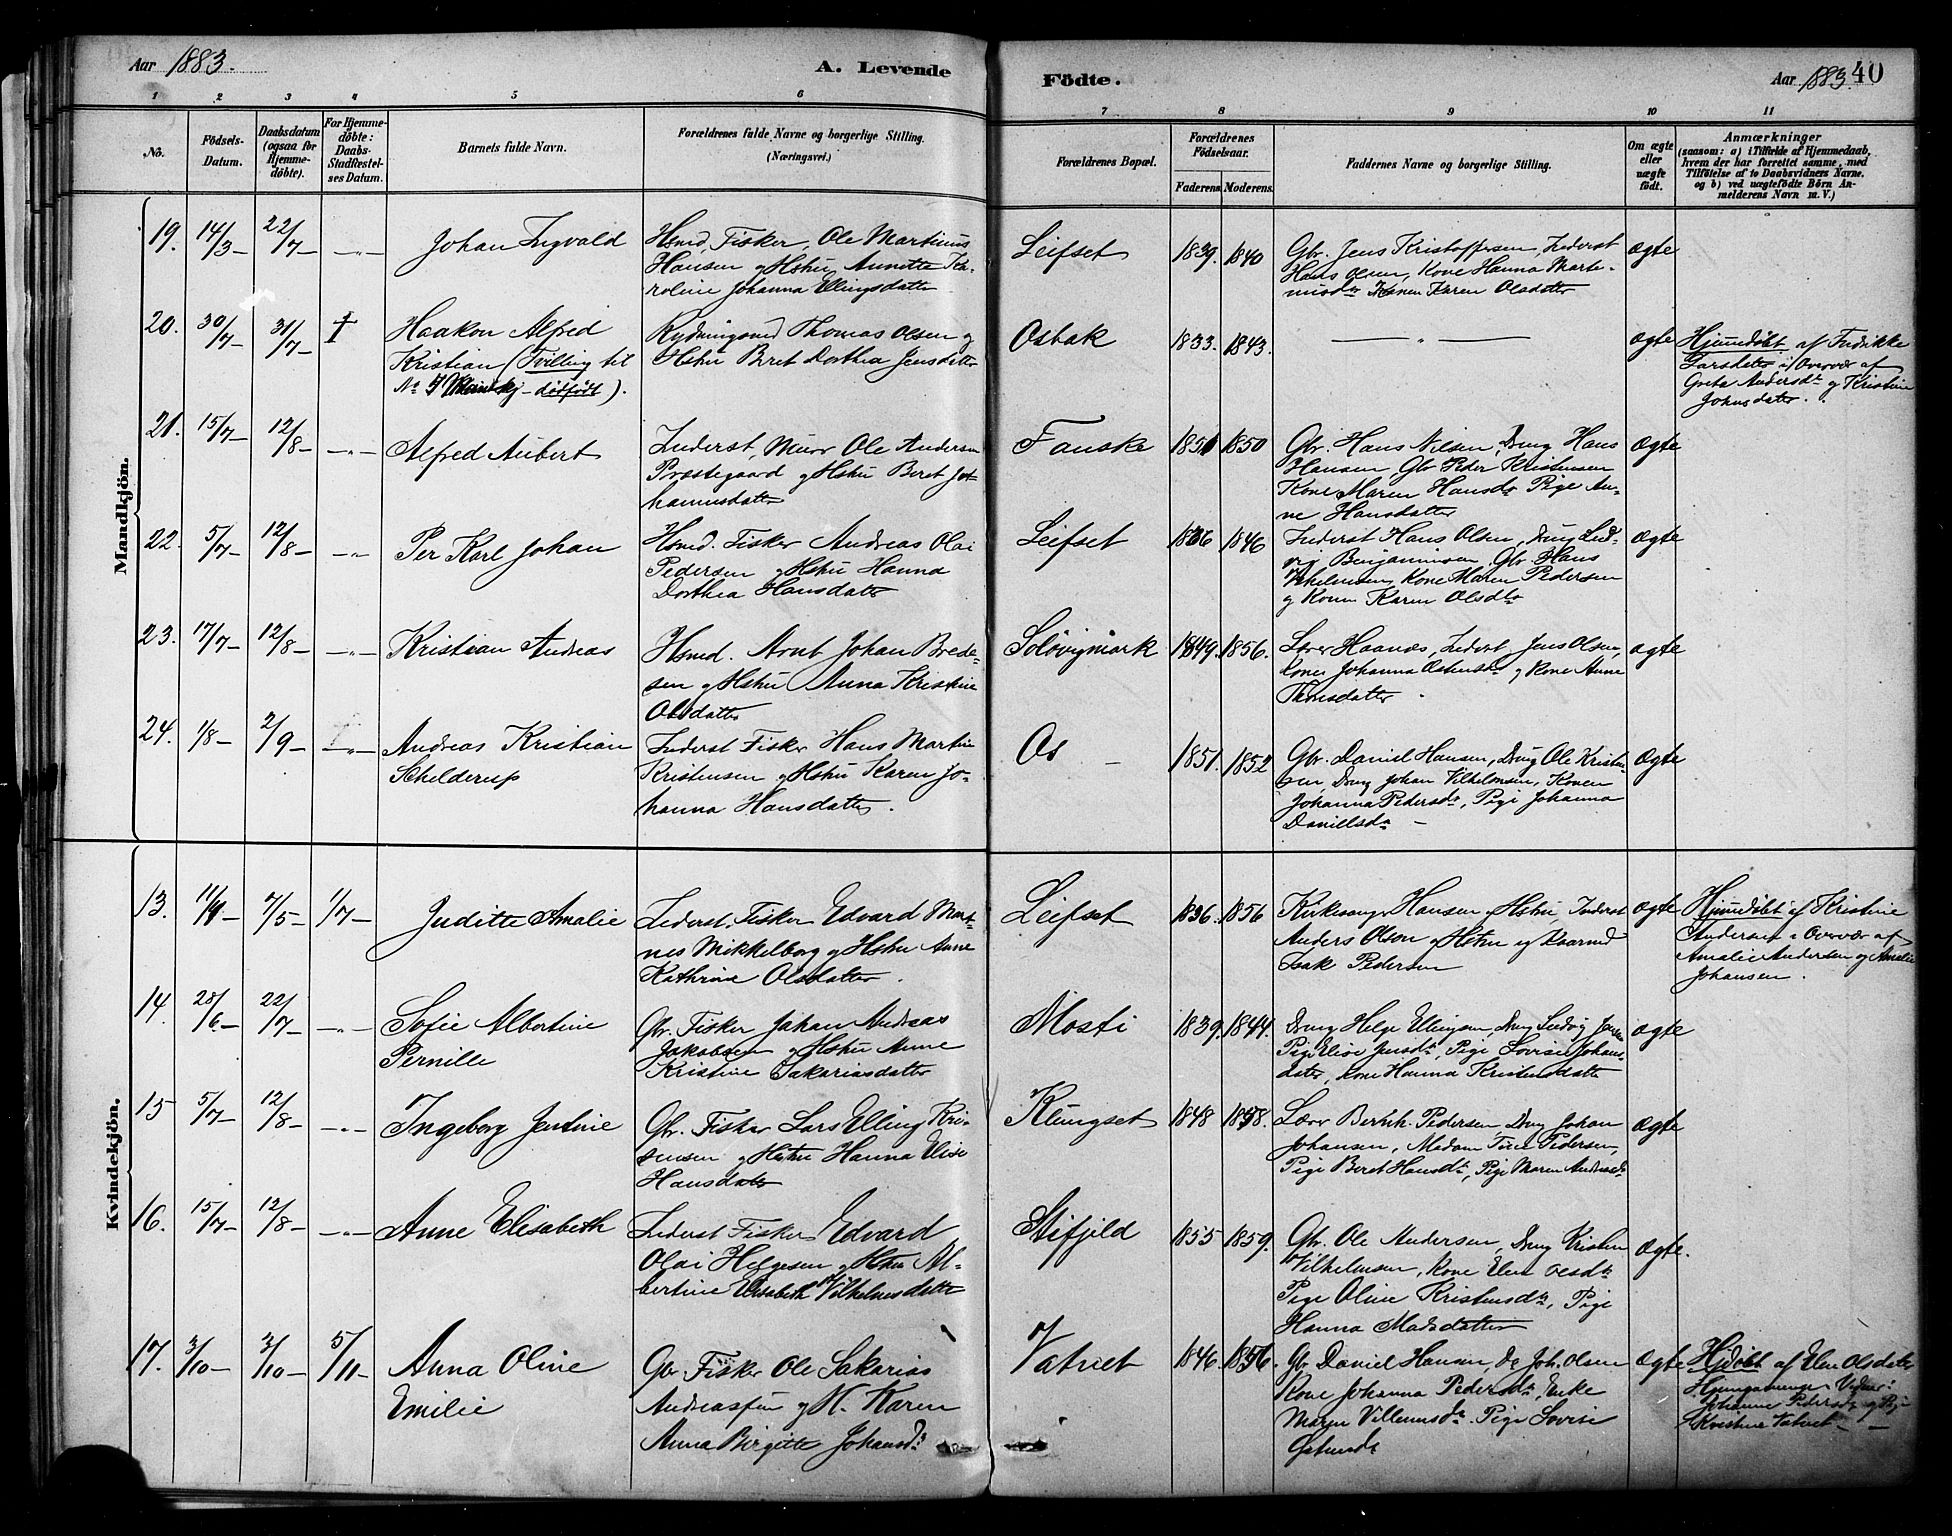 Aar 1883.
A. Levende
Födte.
Aar 1883. 40
1 2 3 4 5 6 7 8 9 10 11
No.
Födsels-
Datum.
Daabsdatum
(ogsaa for
Hjemme-
döbte).
For Hjemme-
döbte:
Daabs-
Stadfæstel-
ses Datum.
Barnets fulde Navn.
Forældrenes fulde Navne og borgerlige Stilling.
(Næringsvei.)
Forældrenes Bopæl.
Forældrenes
Födselsaar.
Faderens. Moderens.
Faddernes Navne og borgerlige Stilling.
Om ægte
eller
uægte
födt.
Anmærkninger
(saasom: a) i Tilfælde af Hjemmedaab,
hvem der har forrettet samme, med
Tilföielse af to Daabsvidners Navne,
og b) ved uægtefödte Börn An-
melderens Navn m. V.)
Mandkjön.
19. 14/3 22/7 Johan Ingvald
Hsmd. Fisker, Ole Martinus
Hansen og Hstru Annette Ka-
roline Johanna Ellingsdatter
Leifset 1839. 1840
Gbr. Jens Kristoffersen, Inderst
Hans Olsen, Kone Hanna Marte-
Karen Olsdatter
ægte
20. 30/7 31/7 †
Haakon Alfred
Kristian (Tvilling til
No dødfødt).
Rydningsmd Thomas Olsen og
Hstru Beret Dorthea Jensdatter
Osbak 1833. 1843.
ægte
Hjemdøbt af Fredrikke
Larsdatter i Overvær af
Greta Andersdr og Kristine
Johnsdatter.
21. 15/7 12/8 Alfred Aubert
Inderst, Murer Ole Andersen
Præstegaard og Hstru Beret Jo-
hannesdatter
Fauske 1851 1850
Gbr. Hans Nilsen, Dreng Hans
Hansen, Gbr Peder Kristensen
Kone Maren Hansdr Pige An-
ne Hansdatter
ægte
22. 5/7 12/8 Per Karl Johan
Hsmd. Fisker Andreas Olai
Pedersen og Hstru Hanna
Dorthea Hansdatter
Leifset 1836 1846
Inderst Hans Olsen, Dreng Lud-
vig Benjaminsen, Gbr Hans
Vilhelmsen, Kone Maren Pedersen
og Kone Karen Olsdtr
ægte
23. 17/7 12/8 Kristian Andreas
Hsmd. Arnt Johan Brede-
sen og Hstru Anna Kristine
Olsdatter
Soløvigmark 1849. 1856.
Lærer Haanæs, Inderst Jens Olsen,
Kone Johanna og Kone Anne
Thomsdatter.
ægte
24. 1/8 2/9 Andreas Kristian
Schelderup
Inderst Fisker Hans Martin
Kristensen og Hstru Karen Jo-
hanna Hansdatter.
Os 1851. 1852
Gbr. Daniel Hansen, Dreng Ole Kristen-
sen, Dreng Johan Vilhelmsen, Konen
Johanna Pedersdr, Pige Johanna
Danielsdr
ægte
Kvindekjön.
13. 11/4 7/5 1/7 Juditte Amalie
Inderst. Fisker Edvard Mar-
nes Mikkelborg og Hstru Anne
Kathrine Olsdatter.
Leifset 1836. 1856
Kirkesanger Hansen og Hstru, Inderst
Anders Olsen og Hstru og Kaarmd
Isak Pedersen
ægte
Hjemdøbt af Kristine
Anderset i Overvær af
Amalie Andersen og Amalie
Johansen.
14. 28/6 22/7 Sofie Albertine
Pernille
Gbr. Fisker Johan Andreas
Jakobsen og Hstru Anne
Kristine Sakariasdatter
Mosti 1839. 1844.
Dreng Helge Ellingsen, Dreng Ludvig
Pige Elise Jensdr, Pige Lovise Johans-
datter, Kone Hanna Kristensdatter
ægte
15 5/7 12/8 Ingeborg Jentine
Gbr. Fisker Lars Elling Kri-
stensen og Hstru Hanna Elise
Hansdatter
Klungset 1848 1858.
Lærer Bernh. Pedersen, Dreng Johan
Johansen, Madam Pedersen,
Pige Beret Hansdtr, Pige Maren Andreasdr
ægte
16. 15/7 12/8 Anne Elisabeth
Inderst Fisker Edvard
Olai Helgesen og Hstru Al-
bertine Elisabeth Vilhelmsdatter
Stifjeld 1855 1859.
Gbr. Ole Andersen, Dreng Kristen
Vilhelmsen, Kone Elen Olsdtr
Pige Oline Kristensdr, Pige
Hanna Madsdatter
ægte.
17. 3/10 3/10 5/11 Anna Oline
Emilie
Gbr Fisker Ole Sakarias
Andreassen og H. Karen
Anna Birgitte Johansdr
Vatnet 1846. 1856.
Gb. Daniel Hansen, Dg Joh. Olsen
Kone Johanna Pedersdr, Enke
Maren Villumsdr Pige Lovise
ægte
Hjdøbt af Elen Olsdatter
Johanne Pedersdr og Pige
Kristine Vatnet